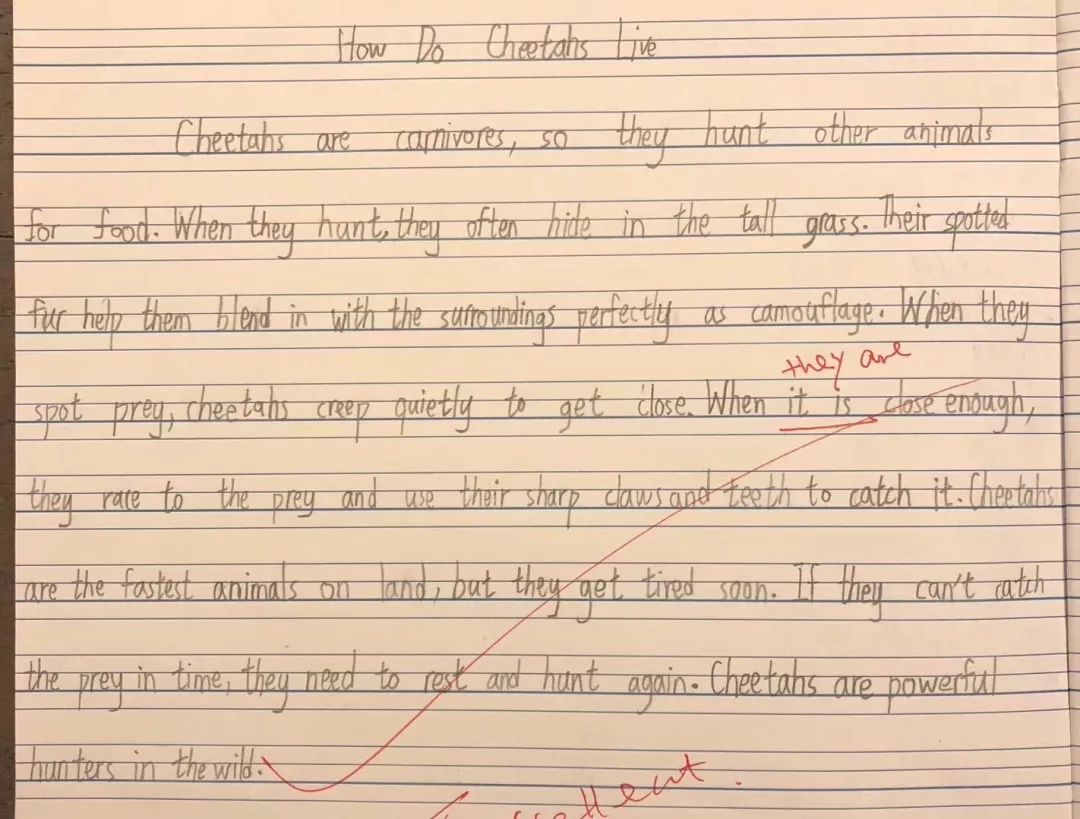 How Do Cheetahs Live
Cheetahs are carnivores, so they hunt other animals
for food. When they hunt, they often hide in the tall grass. Their spotted
fur help them blend in with the surroundings perfectly as camouflage. When they
they are
spot prey, cheetahs creep quietly to get close. When it is close enough,
they race to the prey and use their sharp claws and teeth to catch it. Cheetahs
are the fastest animals on land, but they get tired soon. If they can't catch
the prey in time, they need to rest and hunt again. Cheetahs are powerful
hunters in the wild.